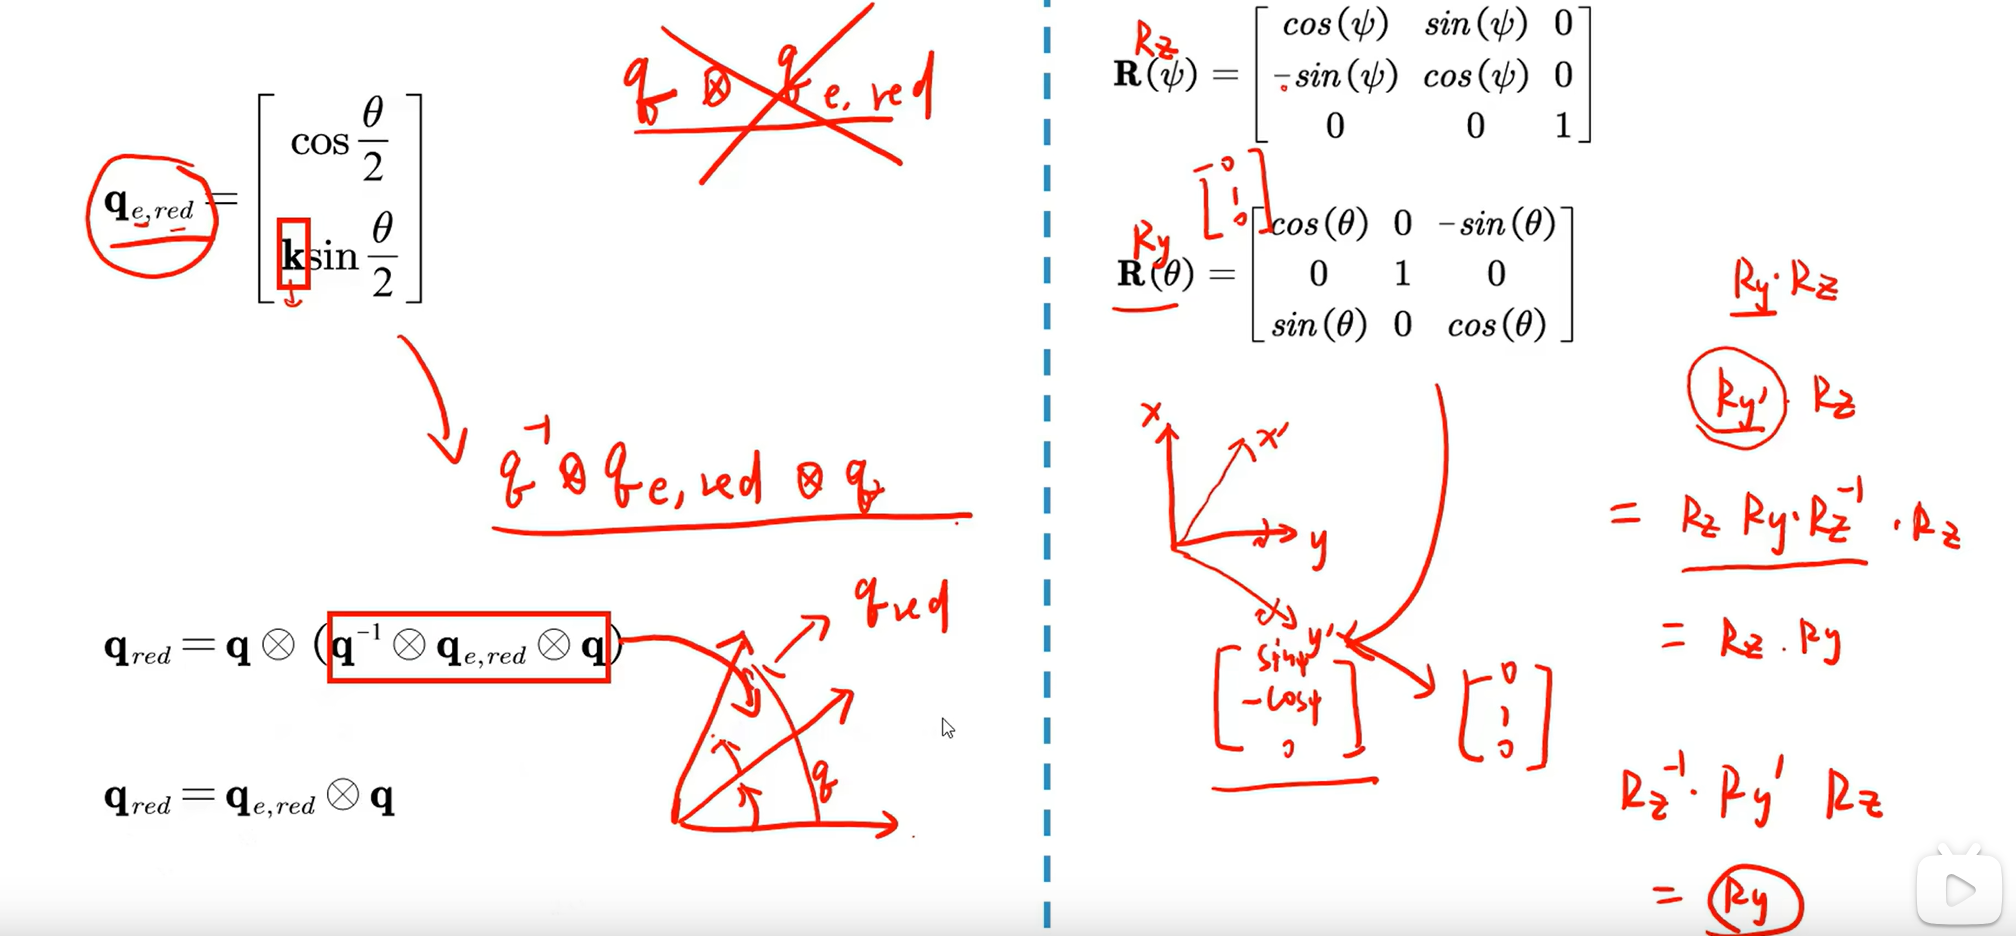 q ⊗ q e, red
q_{e,red} = [ cos θ/2
k sin θ/2 ]
q^{-1} ⊗ q e, red ⊗ q
q_{red} = q ⊗ (q^{-1} ⊗ q_{e,red} ⊗ q)
q_{red} = q_{e,red} ⊗ q
q red
q
Rz
R(ψ) = [ cos(ψ) sin(ψ) 0
-sin(ψ) cos(ψ) 0
0 0 1 ]
[ 0
1
0 ]
Ry
R(θ) = [ cos(θ) 0 -sin(θ)
0 1 0
sin(θ) 0 cos(θ) ]
x
x'
y
y'
[ sinψ
-cosψ
0 ]
[ 0
1
0 ]
Ry · Rz
Ry' · Rz
= Rz Ry · Rz^{-1} · Rz
= Rz · Ry
Rz^{-1} · Ry' Rz
= Ry